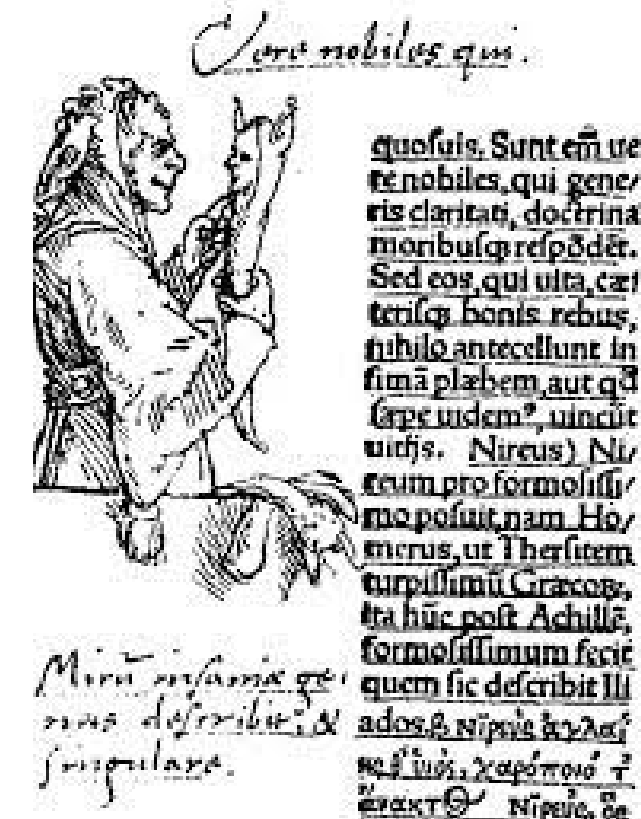 Vere nobiles qui.
quoſuis. Sunt em̃ ue
re nobiles, qui gene/
ris claritati, doctrina
moribuſqꝫ reſpõdẽt.
Sed eos, qui uita, cæt
teriſqꝫ bonis rebus,
nihilo antecellunt in
fimã plæbem, aut qđ
ſæpe uidemꝰ, uincũt
uitijs. Nireus) Ni/
reum pro formoſiſſi/
mo poſuit, nam Ho/
merus, ut Therſitem
turpiſſimũ Græcoꝝ,
ita hũc poſt Achillẽ,
formoſiſſimum fecit
quem ſic deſcribit Ili
ados.β. Νιρεὺς ἀγλαΐ
ης
υἱός, χαρόποιό τ̓
ἄνακτος Νιρεὺς, ὃς
Mirũ inſaniæ ge-
nus deſcribit, &
ſingulare.